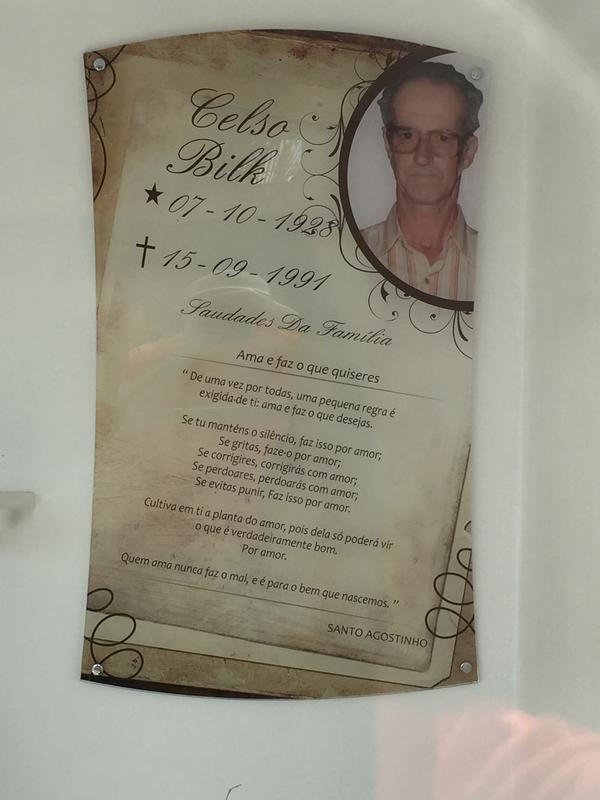 Celso
Bilk
★ 07 - 10 - 1928
✝ 15 - 09 - 1991
Saudades Da Família
Ama e faz o que quiseres
“ De uma vez por todas, uma pequena regra é
exigida de ti: ama e faz o que desejas.
Se tu manténs o silêncio, faz isso por amor;
Se gritas, faze-o por amor;
Se corrigires, corrigirás com amor;
Se perdoares, perdoarás com amor;
Se evitas punir, Faz isso por amor.
Cultiva em ti a planta do amor, pois dela só poderá vir
o que é verdadeiramente bom.
Por amor.
Quem ama nunca faz o mal, e é para o bem que nascemos. ”
SANTO AGOSTINHO